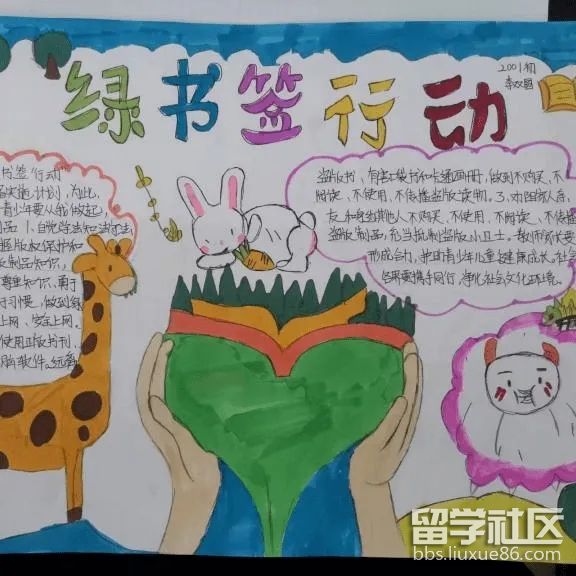 绿书签行动
2001初
书签"行动"
实施计划,为此,
青少年要从我做起,
制品1.自觉学法和守法
版权保护和
版制品知识,
尊重知识、勇于
习惯,做到绿
上网、安全上网。
使用正版书刊、
软件。远离
盗版书、有害口袋书和卡通画册,做到不购买、不
阅读、不使用、不传播盗版读物。3.动员家人亲
友和身边其他人不购买、不使用、不阅读、不传播
盗版制品,充当抵制盗版小卫士。教师家长要
形成合力,护助青少年儿童健康成长,社会
各界要携手同行,净化社会文化环境。
留学社区
bbs.liuxue86.com